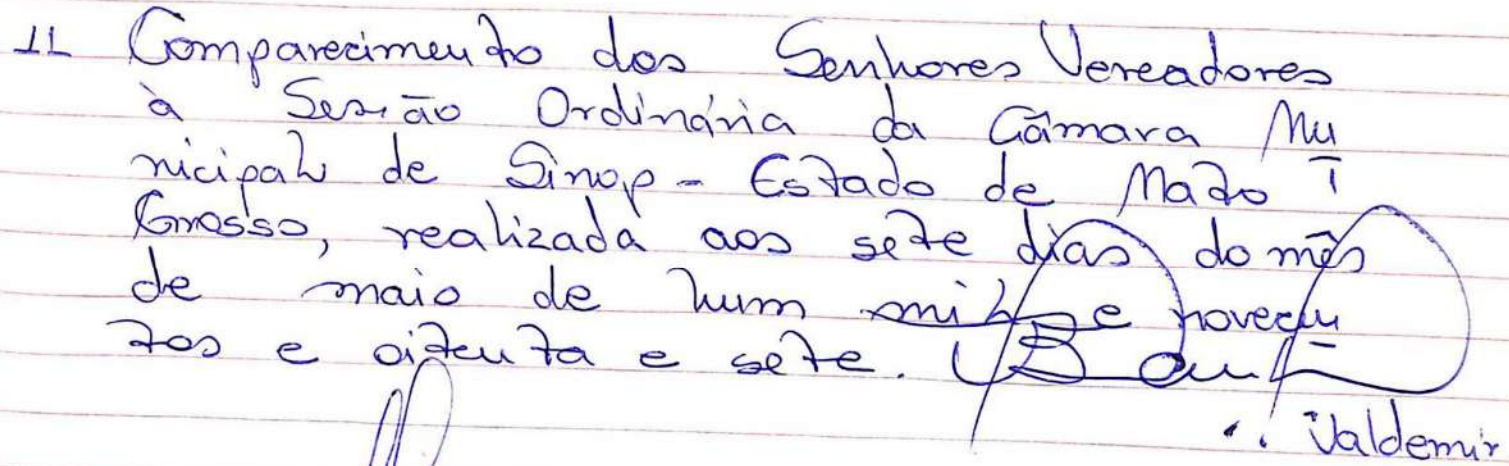 11 Comparecimento dos Senhores Vereadores
à Sessão Ordinária da Câmara Mu
nicipal de Sinop - Estado de Mato
Grosso, realizada aos sete dias do mês
de maio de hum mil e novecen
tos e oitenta e sete.
Valdemir